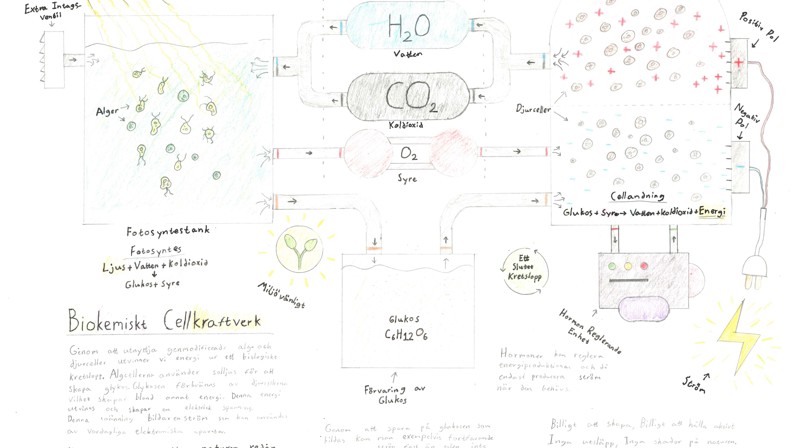 Extra Intags-
ventil
H₂O
Vatten
CO₂
Koldioxid
O₂
Syre
Alger
Djurceller
Positiv Pol
+
Negativ
Pol
-
Cellandning
Glukos + Syre → Vatten + Koldioxid + Energi
Fotosyntestank
Fotosyntes
Ljus + Vatten + Koldioxid
↓
Glukos + Syre
Miljövänligt
Glukos
C₆H12O₆
Förvaring av
Glukos
Ett
Slutet
Kretslopp
Hormon Reglerande
Enhet
Ström
Biokemiskt Cellkraftverk
Genom att utnyttja genmodifierade alge och
djurceller utvinner vi energi ur ett biologiskt
kretslopp. Algcellerna använder solljus för att
skapa glykos. Glykosen förbränns av djurcellerna
vilket skapar bland annat energi. Denna energi
utvinns och skapar en elektrisk spänning.
Denna spänning bildar en ström som kan användas
av vardagliga elektroniska apparater.
Genom att spara på glukosen som
bildas kan man exempelvis fortfarande
Hormoner kan reglera
energiproduktionen och då
endast producera ström
när den behövs.
Billigt att skapa, Billigt att hålla
Ingen